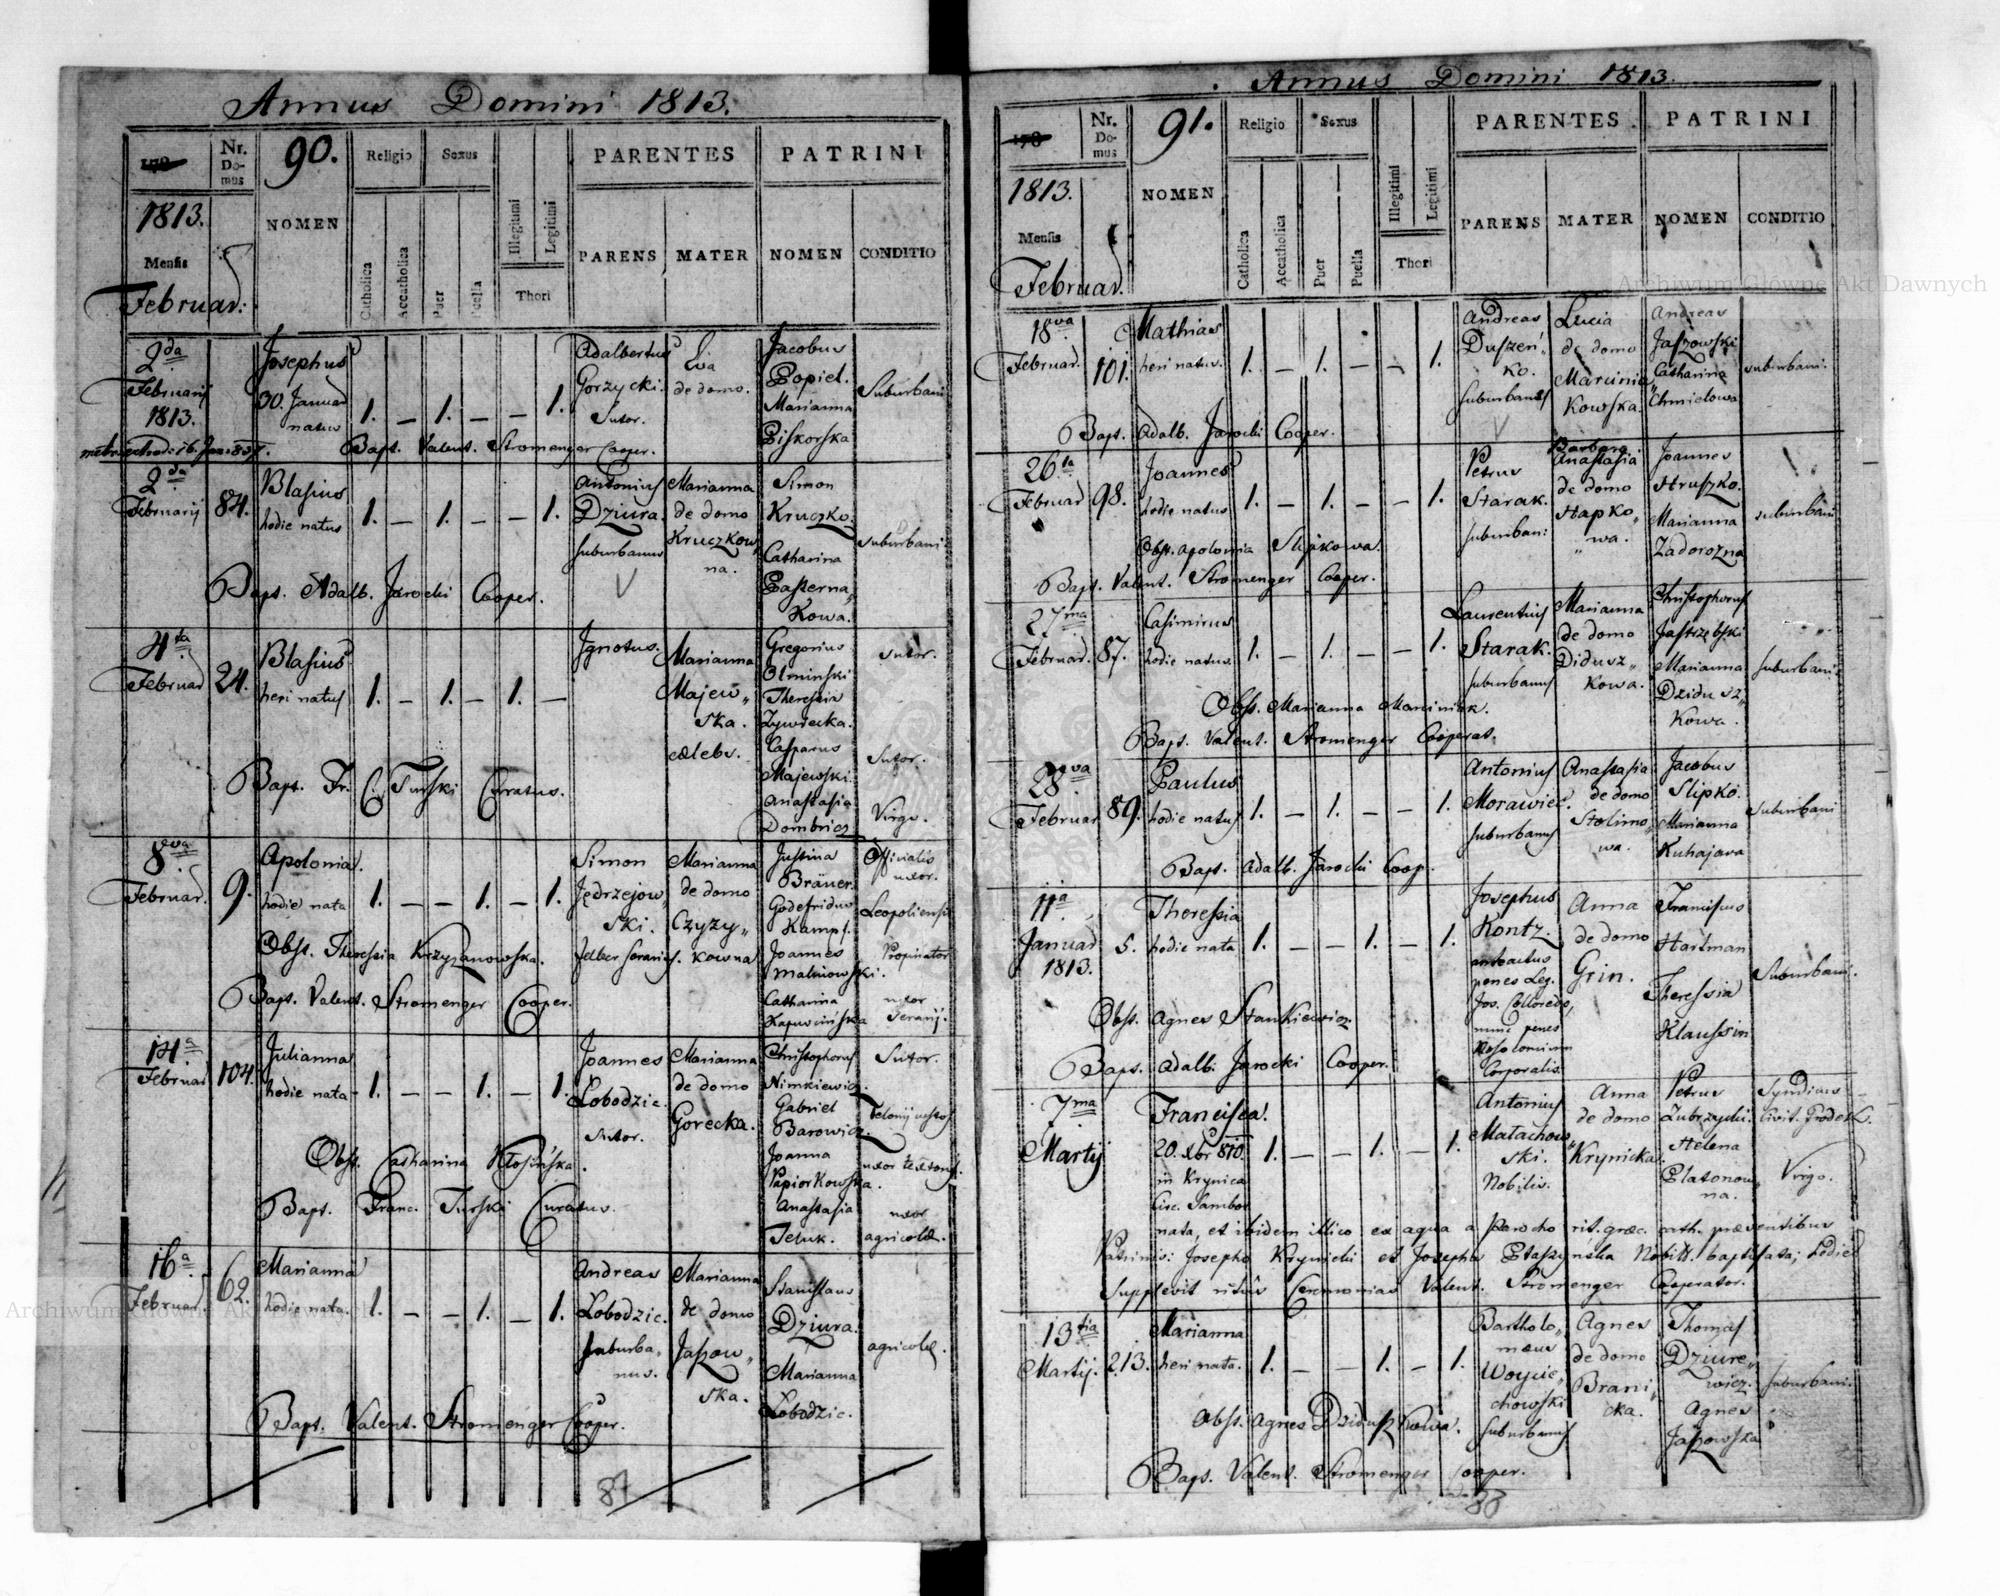 Annus Domini 1813.
Nr. Domus
90.
Religio
Sexus
PARENTES
PATRINI
1813.
Mensis
Februar:
NOMEN
Catholica
Accatholica
Puer
Puella
Illegitimi
Legitimi
Thori
PARENS
MATER
NOMEN
CONDITIO
2da Februarij 1813.
Josephus 30. Januar natus
1. — 1. — — 1.
Adalbertus Gorzycki. Sutor.
Eva de domo.
Jacobus Popiel. Marianna Piskorska
Suburbani
Bapt. Valent. Stromenger Cooper.
2da Februarij
84.
Blasius hodie natus
1. — 1. — — 1.
Antonius Dziura. suburbanus
Marianna de domo Kruczkowna.
Simon Kruczko. Catharina Pasternakowa.
suburbani
Bapt. Adalb. Jarocki Cooper.
4ta Februar
24.
Blasius heri natus
1. — 1. — 1. —
Ignotus.
Marianna Majewska. cælebs.
Gregorius Olminski Theressia Zywiecka.
Sutor.
Casparus Majewski. Anastasia Dombricz
Sutor.
Virgo.
Bapt. Fr. C. Turski Curatus.
8va Februar.
9.
Apolonia. hodie nata
1. — — 1. — 1.
Simon Jędrzejowski.
Marianna de domo Czyzykowna
Justina Bräuer. Godefridus Kampf. Joannes Malinowski. Catharina Kapuscińska
Officialis uxor.
Leopoliensis
Propinator
uxor
Obst. Theressia Krzyzanowska.
Bapt. Valent. Stromenger Cooper.
14a Februar
104.
Julianna hodie nata
1. — — 1. — 1.
Joannes Łobodzic. Sutor.
Marianna de domo Gorecka.
Christophorus Nimkiewicz. Gabriel Barowicz. Joanna Papiorkowska. Anastasia Teluk.
Sutor.
uxor textoris.
uxor agricolæ.
Obst. Catharina Kłosińska.
Bapt. Franc. Turski Curatus.
16a Februar.
62.
Marianna hodie nata.
1. — — 1. — 1.
Andreas Łobodzic. suburbanus.
Marianna de domo Jaszowska.
Stanislaus Dziura. Marianna Łobodzic.
agricolæ.
Bapt. Valent. Stromenger Cooper.
Annus Domini 1813.
Nr. Domus
91.
Religio
Sexus
PARENTES
PATRINI
1813.
Mensis
Februar.
NOMEN
Catholica
Accatholica
Puer
Puella
Illegitimi
Legitimi
Thori
PARENS
MATER
NOMEN
CONDITIO
18va Februar.
101.
Mathias heri natus.
1. — 1. — — 1.
Andreas Duszeńko. suburbanus
Lucia de domo Marciniakowska.
Andreas Jaszowski Catharina Chmielowa
suburbani.
Bapt. Adalb. Jarocki Cooper.
26ta Februar
98.
Joannes hodie natus
1. — 1. — — 1.
Petrus Starak. suburban:
Barbara Anastasia de domo Hapkowa.
Joannes Hruszko. Marianna Zadorozna
suburbani
Obst. Apolonia Slipkowa.
Bapt. Valent. Stromenger Cooper.
27ma Februar.
87.
Casimirus hodie natus.
1. — 1. — — 1.
Laurentius Starak. suburbanus
Marianna de domo Diduszkowa.
Christophorus Jastrzębski Marianna Dziduszkowa.
suburbani.
Obst. Marianna Marciniak.
Bapt. Valent. Stromenger Cooperat.
28va Februar
89.
Paulus hodie natus
1. — 1. — — 1.
Antonius Morawiec. suburbanus
Anastasia de domo Stolimowa.
Jacobus Slipko. Marianna Kuhajowa
suburbani
Bapt. Adalb. Jarocki Coop.
11a Januar 1813.
5.
Theressia hodie nata
1. — — 1. — 1.
Josephus Kontz. anteactus penes Leg. Jos. Colloredo, nunc penes Corporalis.
Anna de domo Grin.
Franciscus Hartman Theressia Klaussin
Suburbani.
Obst. Agnes Stankiewicz
Bapt. Adalb. Jarocki Cooper.
7ma Martij
Francisca. 20. Xbr 810. in Krynica Circ. Sambor
1. — — 1. — 1.
Antonius Matachowski. Nobilis.
Anna de domo Krynicka.
Petrus Zubrzycki. Helena Platonowna.
Syndicus Civit.
Virgo.
nata, et ibidem illico ex aqua a Parocho rit. græc. cath. præsentibus
Patrinis: Josepho Krynicki et Josepha Staszynska Nobilt. baptisata; hodie
supplevit ritûs Ceremonias Valent. Stromenger Cooperator.
13tia Martij.
213.
Marianna heri nata.
1. — — 1. — 1.
Bartholomæus Woyciechowski suburbanus
Agnes de domo Branicka.
Thomas Dziurewicz. Agnes Jaszowska
suburbani.
Obst. Agnes Dziduszkowa.
Bapt. Valent. Stromenger Cooper.
Archiwum Główne Akt Dawnych
Archiwum Główne Akt Dawnych